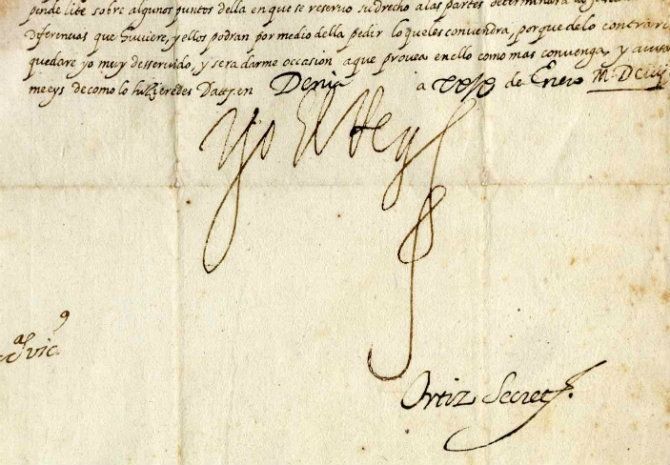 pende lite sobre algunos puntos della en que se reservo su drecho a las partes determinara
diferencias que huviere, y ellos podran por medio della pedir lo que les convendra, porque de lo contrario
quedare yo muy desservido, y sera darme occasion a que provea en ello como mas convenga, y avisa
meeys de como lo hizieredes Dat. en Denia a de Enero
Yo El Rey
Ortiz Secret.